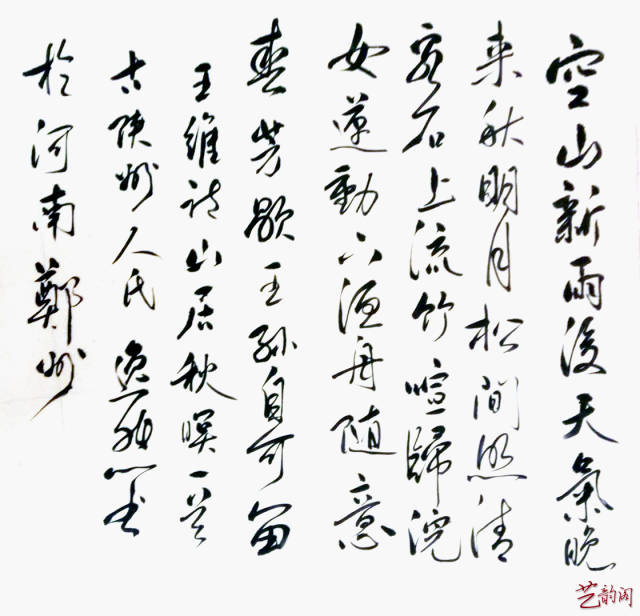 空山新雨後天氣晚
来秋明月松間照清
泉石上流竹喧歸浣
女蓮動下漁舟随意
春芳歇王孫自可留
王維诗山居秋暝一首
古陕州人氏逸书
於河南鄭州
艺韵阁